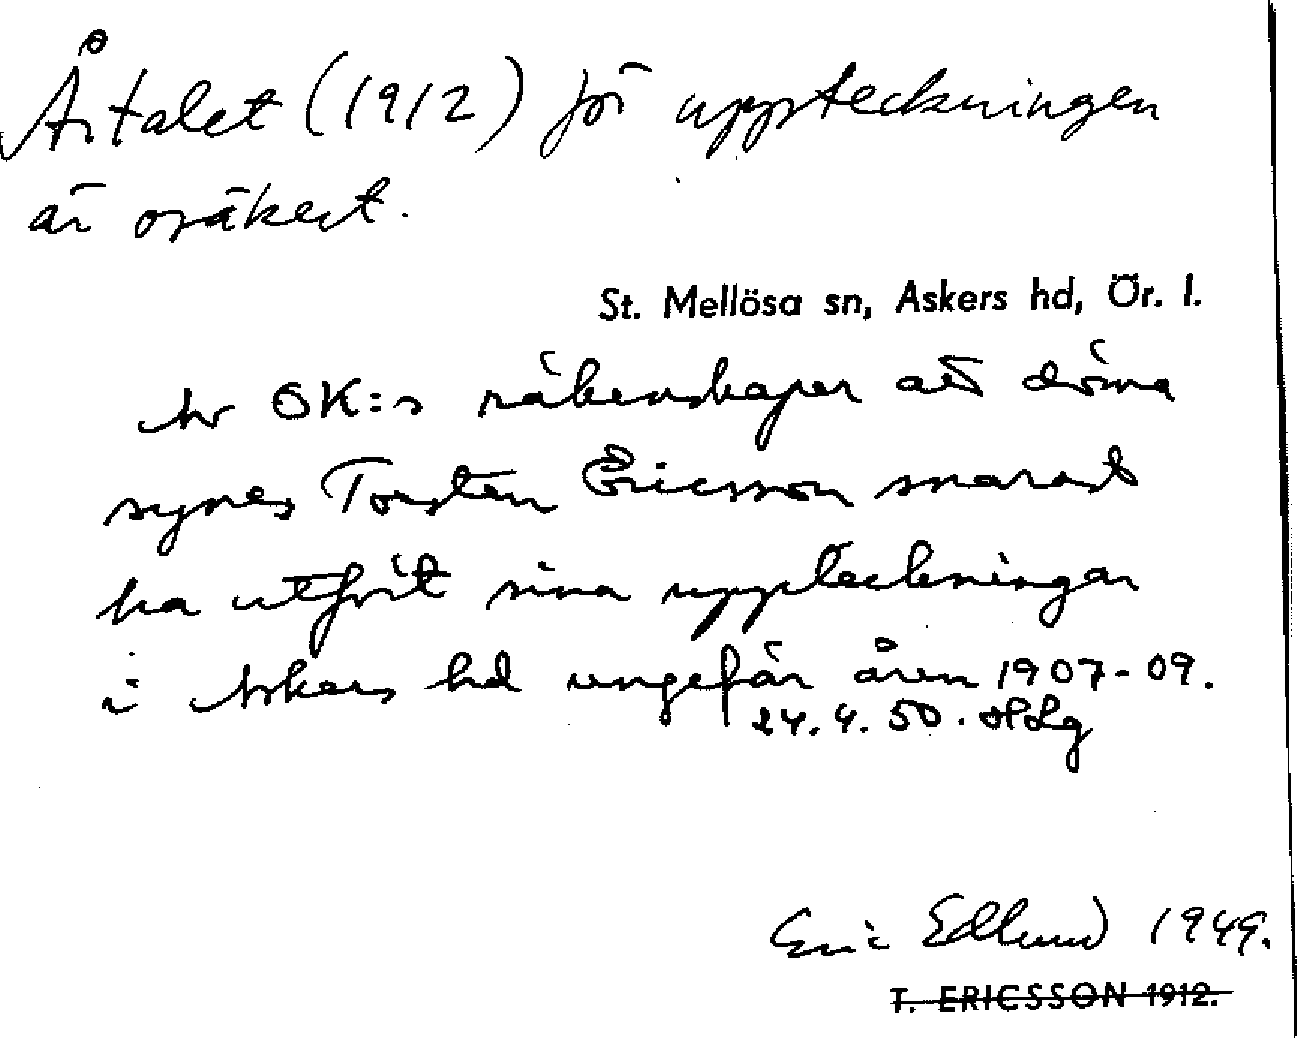 Årtalet (1912) för uppteckningen
är osäkert.
St. Mellösa sn, Askers hd, Ör. l.
Av OK:s räkenskaper att döma
synes Torsten Ericsson snarast
ha utfört sina uppteckningar
i Askers hd ungefär åren 1907-09.
24.4.50.
Eric Edlund 1949.
T. ERICSSON 1912.